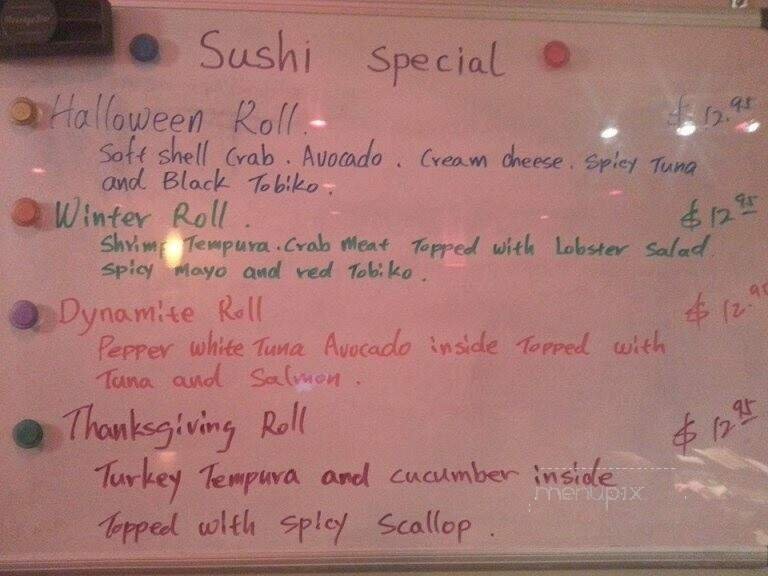 Sushi Special
Halloween Roll. $12.95
Soft shell Crab. Avocado. Cream cheese. Spicy Tuna
and Black Tobiko.
Winter Roll. $12.95
Shrimp Tempura. Crab Meat Topped with Lobster Salad
Spicy Mayo and red Tobiko.
Dynamite Roll $12.95
Pepper white Tuna Avocado inside Topped with
Tuna and Salmon.
Thanksgiving Roll $12.95
Turkey Tempura and cucumber inside
Topped with spicy scallop.
menupix